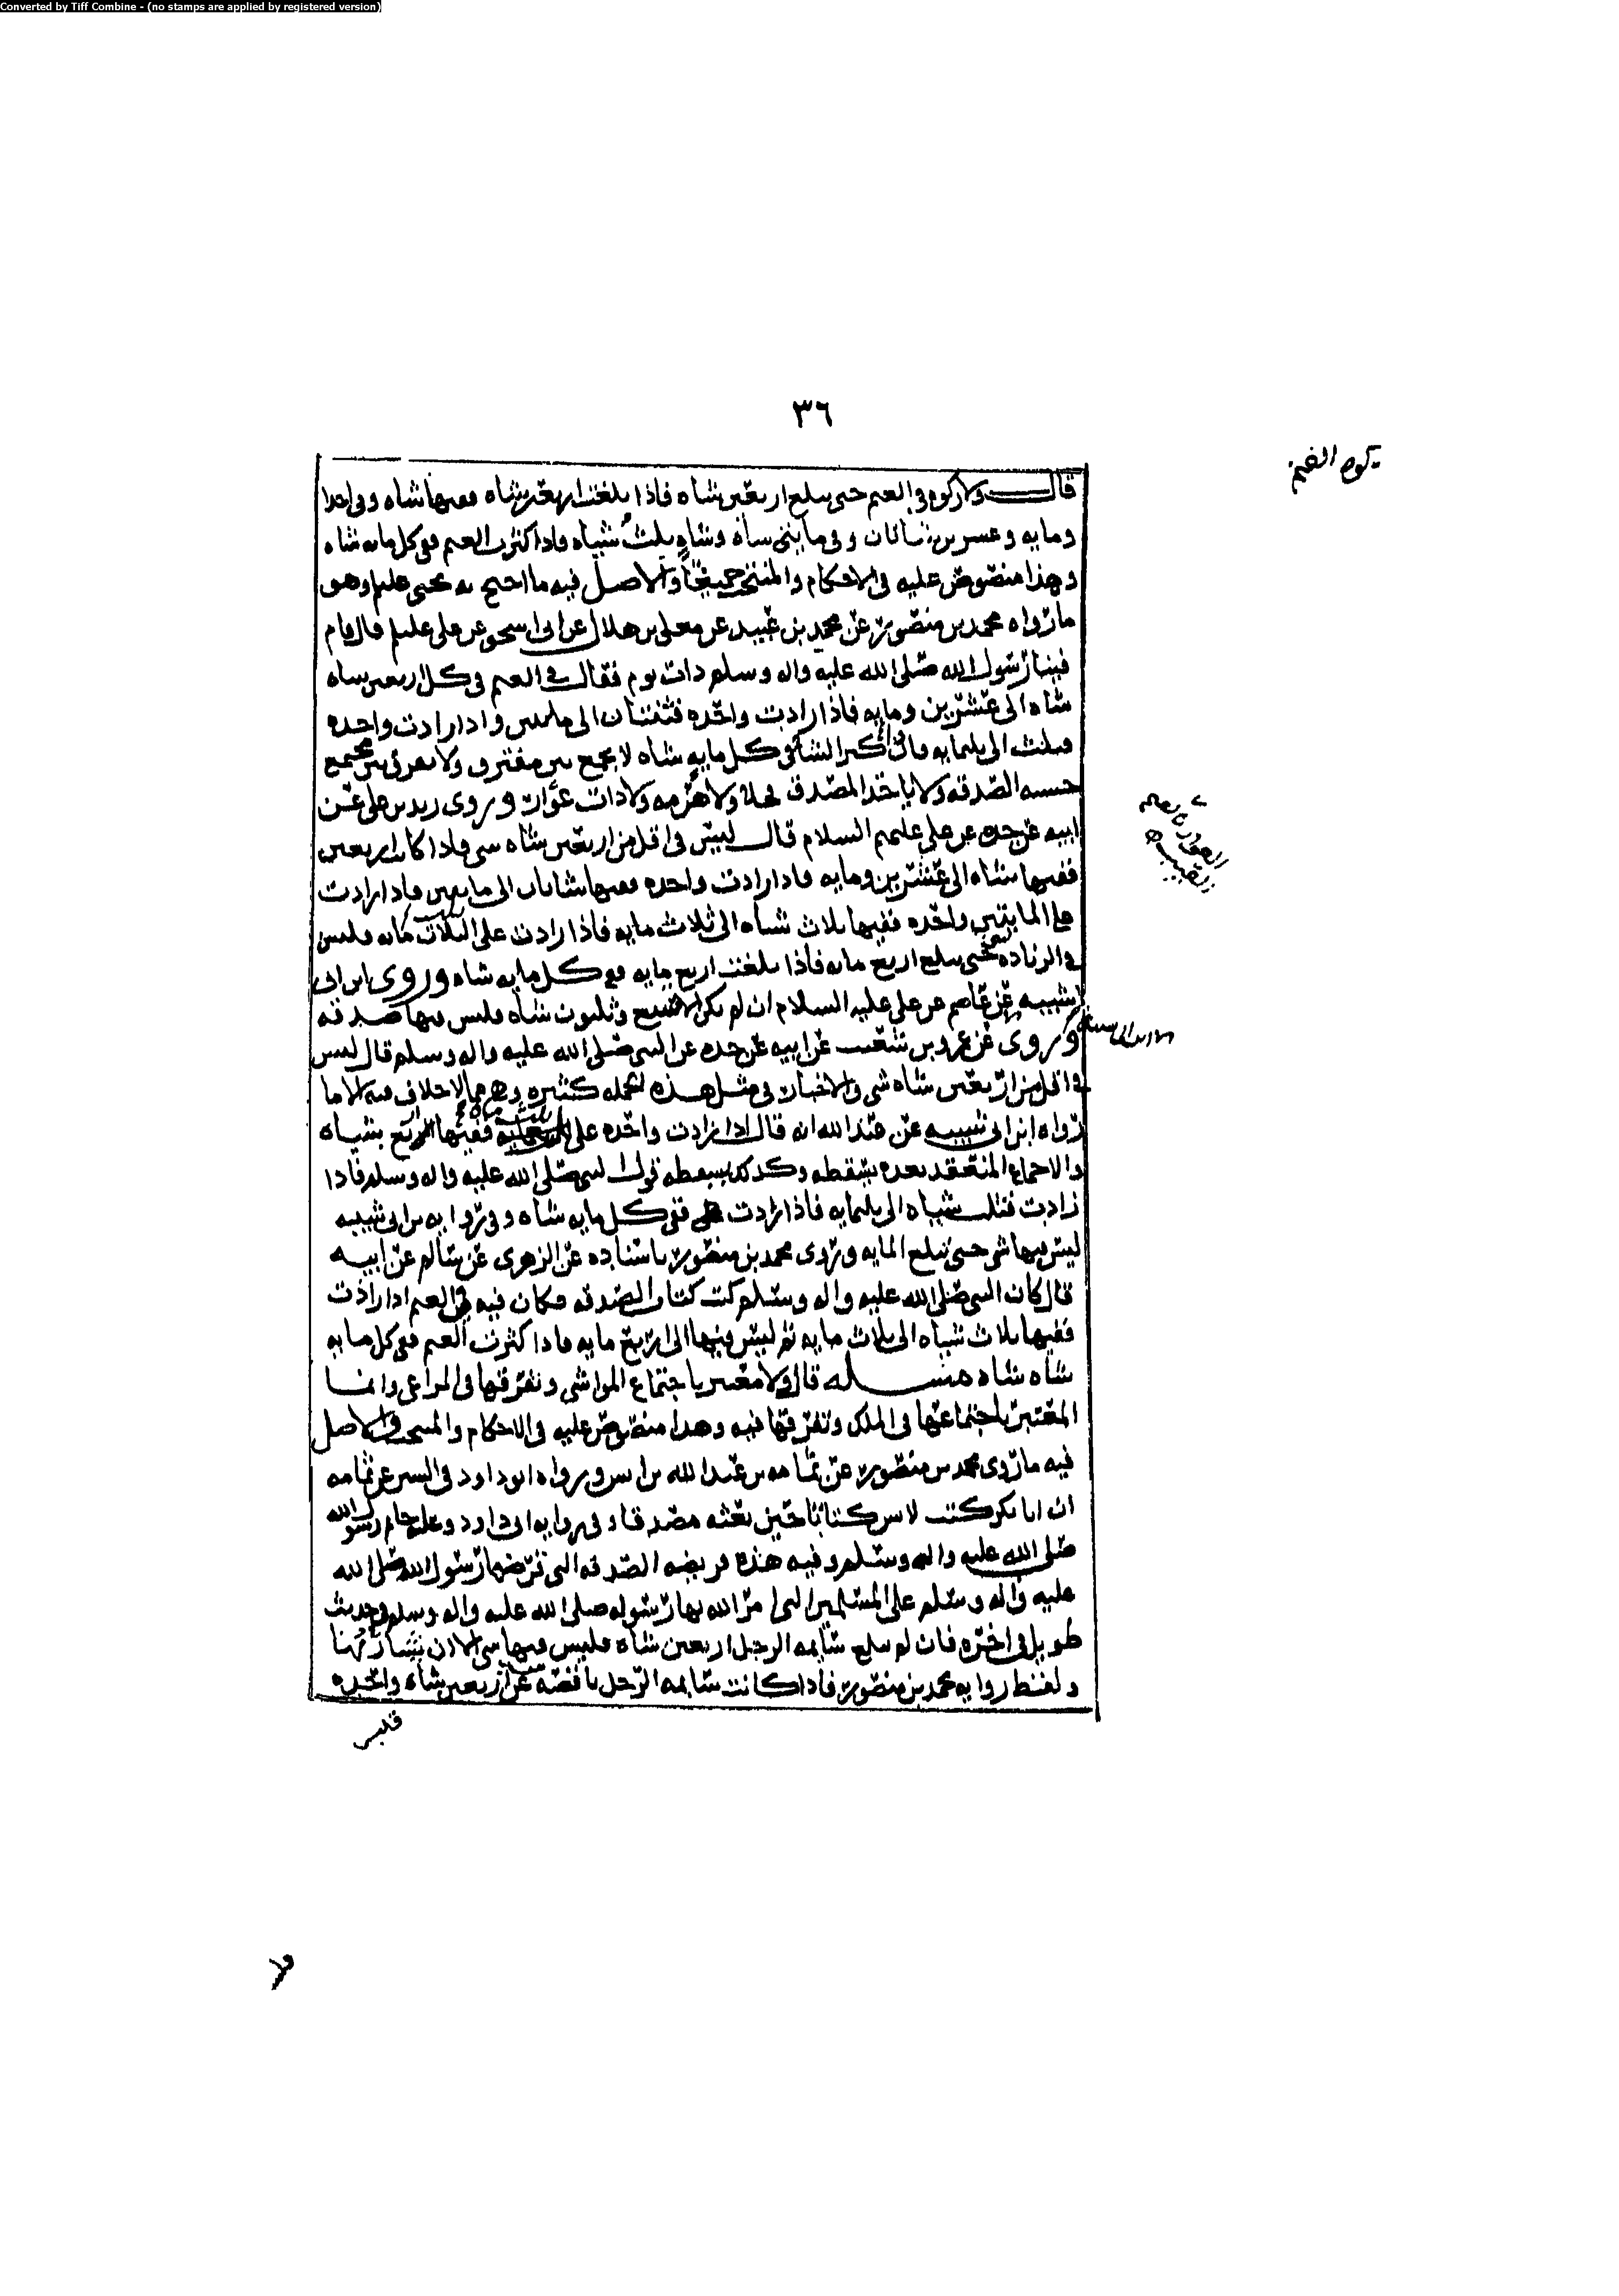 Converted by Tiff Combine - (no stamps are applied by registered version)
٣٦
زكوة الغنم
قال ولا زكوة في الغنم حتى تبلغ اربعين شاه فاذا بلغت اربعين شاه ففيها شاه وفي احدا
ومايه وعشرين شاتان وفي مايتي شاه وشاه ثلث شياه فاذا كثرت الغنم ففي كل مايه شاه
وهذا منصوص عليه في الاحكام والمنتخب جميعًا والاصل فيه ما احتج به يحيى عليلم وهو
ما رواه محمد بن منصور عن محمد بن عبيد عن معلى بن هلال عن ابي اسحق عن علي عليلم قال قام
فينا رسول الله صلى الله عليه واله وسلم ذات يوم فقال في الغنم في كل اربعين شاه
شاه الى عشرين ومايه فاذا زادت واحده فثنتان الى مايتين واذا زادت واحده
فثلث الى ثلثمايه فان كثر الشا ففي كل مايه شاه لا يجمع بين مفترق ولا يفرق بين مجتمع
خشيه الصدقه ولا ياخذ المصدق فحله ولا هرمه ولا ذات عوار وروى زيد بن علي عن
العوار بالعين
العيب
ابيه عن جده عن علي عليهم السلام قال ليس في اقل من اربعين شاه شي فاذا كانت اربعين
ففيها شاه الى عشرين ومايه فاذا زادت واحده ففيها شاتان الى مايتين فاذا زادت
على المايتين واحده ففيها ثلاث شياه الى ثلاث مايه فاذا زادت على الثلاث مايه فليس
في الزياده شي حتى تبلغ اربع مايه فاذا بلغت اربع مايه ففي كل مايه شاه وروى ابن ابي
شيبه عن عاصم عن علي عليه السلام ان لم يكن الا تسع وثلثون شاه فليس فيها صدقه
وروى عن عمرو بن شعيب عن ابيه عن جده عن النبي صلى الله عليه واله وسلم قال ليس
في اقل من اربعين شاه شي والاخبار في مثل هذه الجمله كثيره وهو مما لا خلاف فيه الا ما
رواه ابن ابي شيبه عن عبد الله انه قال اذا زادت واحده على ثلث مايه ففيها اربع شياه
والاجماع المنعقد بعده يسقطه وكذلك يسقطه قول النبي صلى الله عليه واله وسلم فاذا
زادت فثلث شياه الى ثلثمايه فاذا زادت ففي كل مايه شاه وفي روايه بن ابي شيبه
ليس فيها شي حتى تبلغ المايه وروى محمد بن منصور باسناده عن الزهري عن سالم عن ابيه
قال كان النبي صلى الله عليه واله وسلم كتب كتاب الصدقه فكان فيه في الغنم اذا زادت
ففيها ثلاث شياه الى ثلاث مايه ثم ليس فيها الى اربع مايه فاذا كثرت الغنم ففي كل مايه
شاه شاه مسله قال ولا معتبر باجتماع المواشي وتفرقها في المراعي وانما
المعتبر باجتماعها في الملك وتفرقها فيه وهذا منصوص عليه في الاحكام والمنتخب والاصل
فيه ما روى محمد بن منصور عن ثمامه بن عبد الله بن انس ورواه ابو داود في السنن عن ثمامه
ان ابا بكر كتب لانس كتابًا حين بعثه مصدقا وفي روايه ابي داود وعليه خاتم رسول الله
صلى الله عليه واله وسلم وفيه هذه فريضه الصدقه التي فرضها رسول الله صلى الله
عليه واله وسلم على المسلمين التي امر الله بها رسوله صلى الله عليه واله وسلم وحديث
طويل في اخره فان لم تبلغ سايمه الرجل اربعين شاه فليس فيها شي الا ان يشا ربها
ولفظ روايه محمد بن منصور فاذا كانت سايمه الرجل ناقصه عن اربعين شاه واحده
فليس